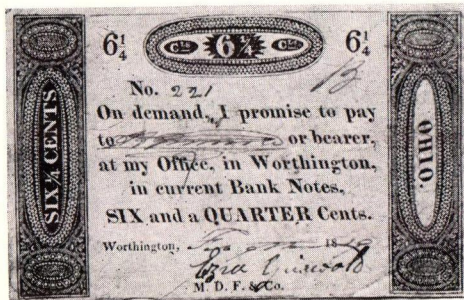 6¼ Cts. 6¼ Cts. 6¼
No. 221
On demand, I promise to pay
to or bearer,
at my Office, in Worthington,
in current Bank Notes,
SIX and a QUARTER Cents.
Worthington, 18
Ezra Griswold
M. D. F. & Co.
SIX ¼ CENTS
OHIO.